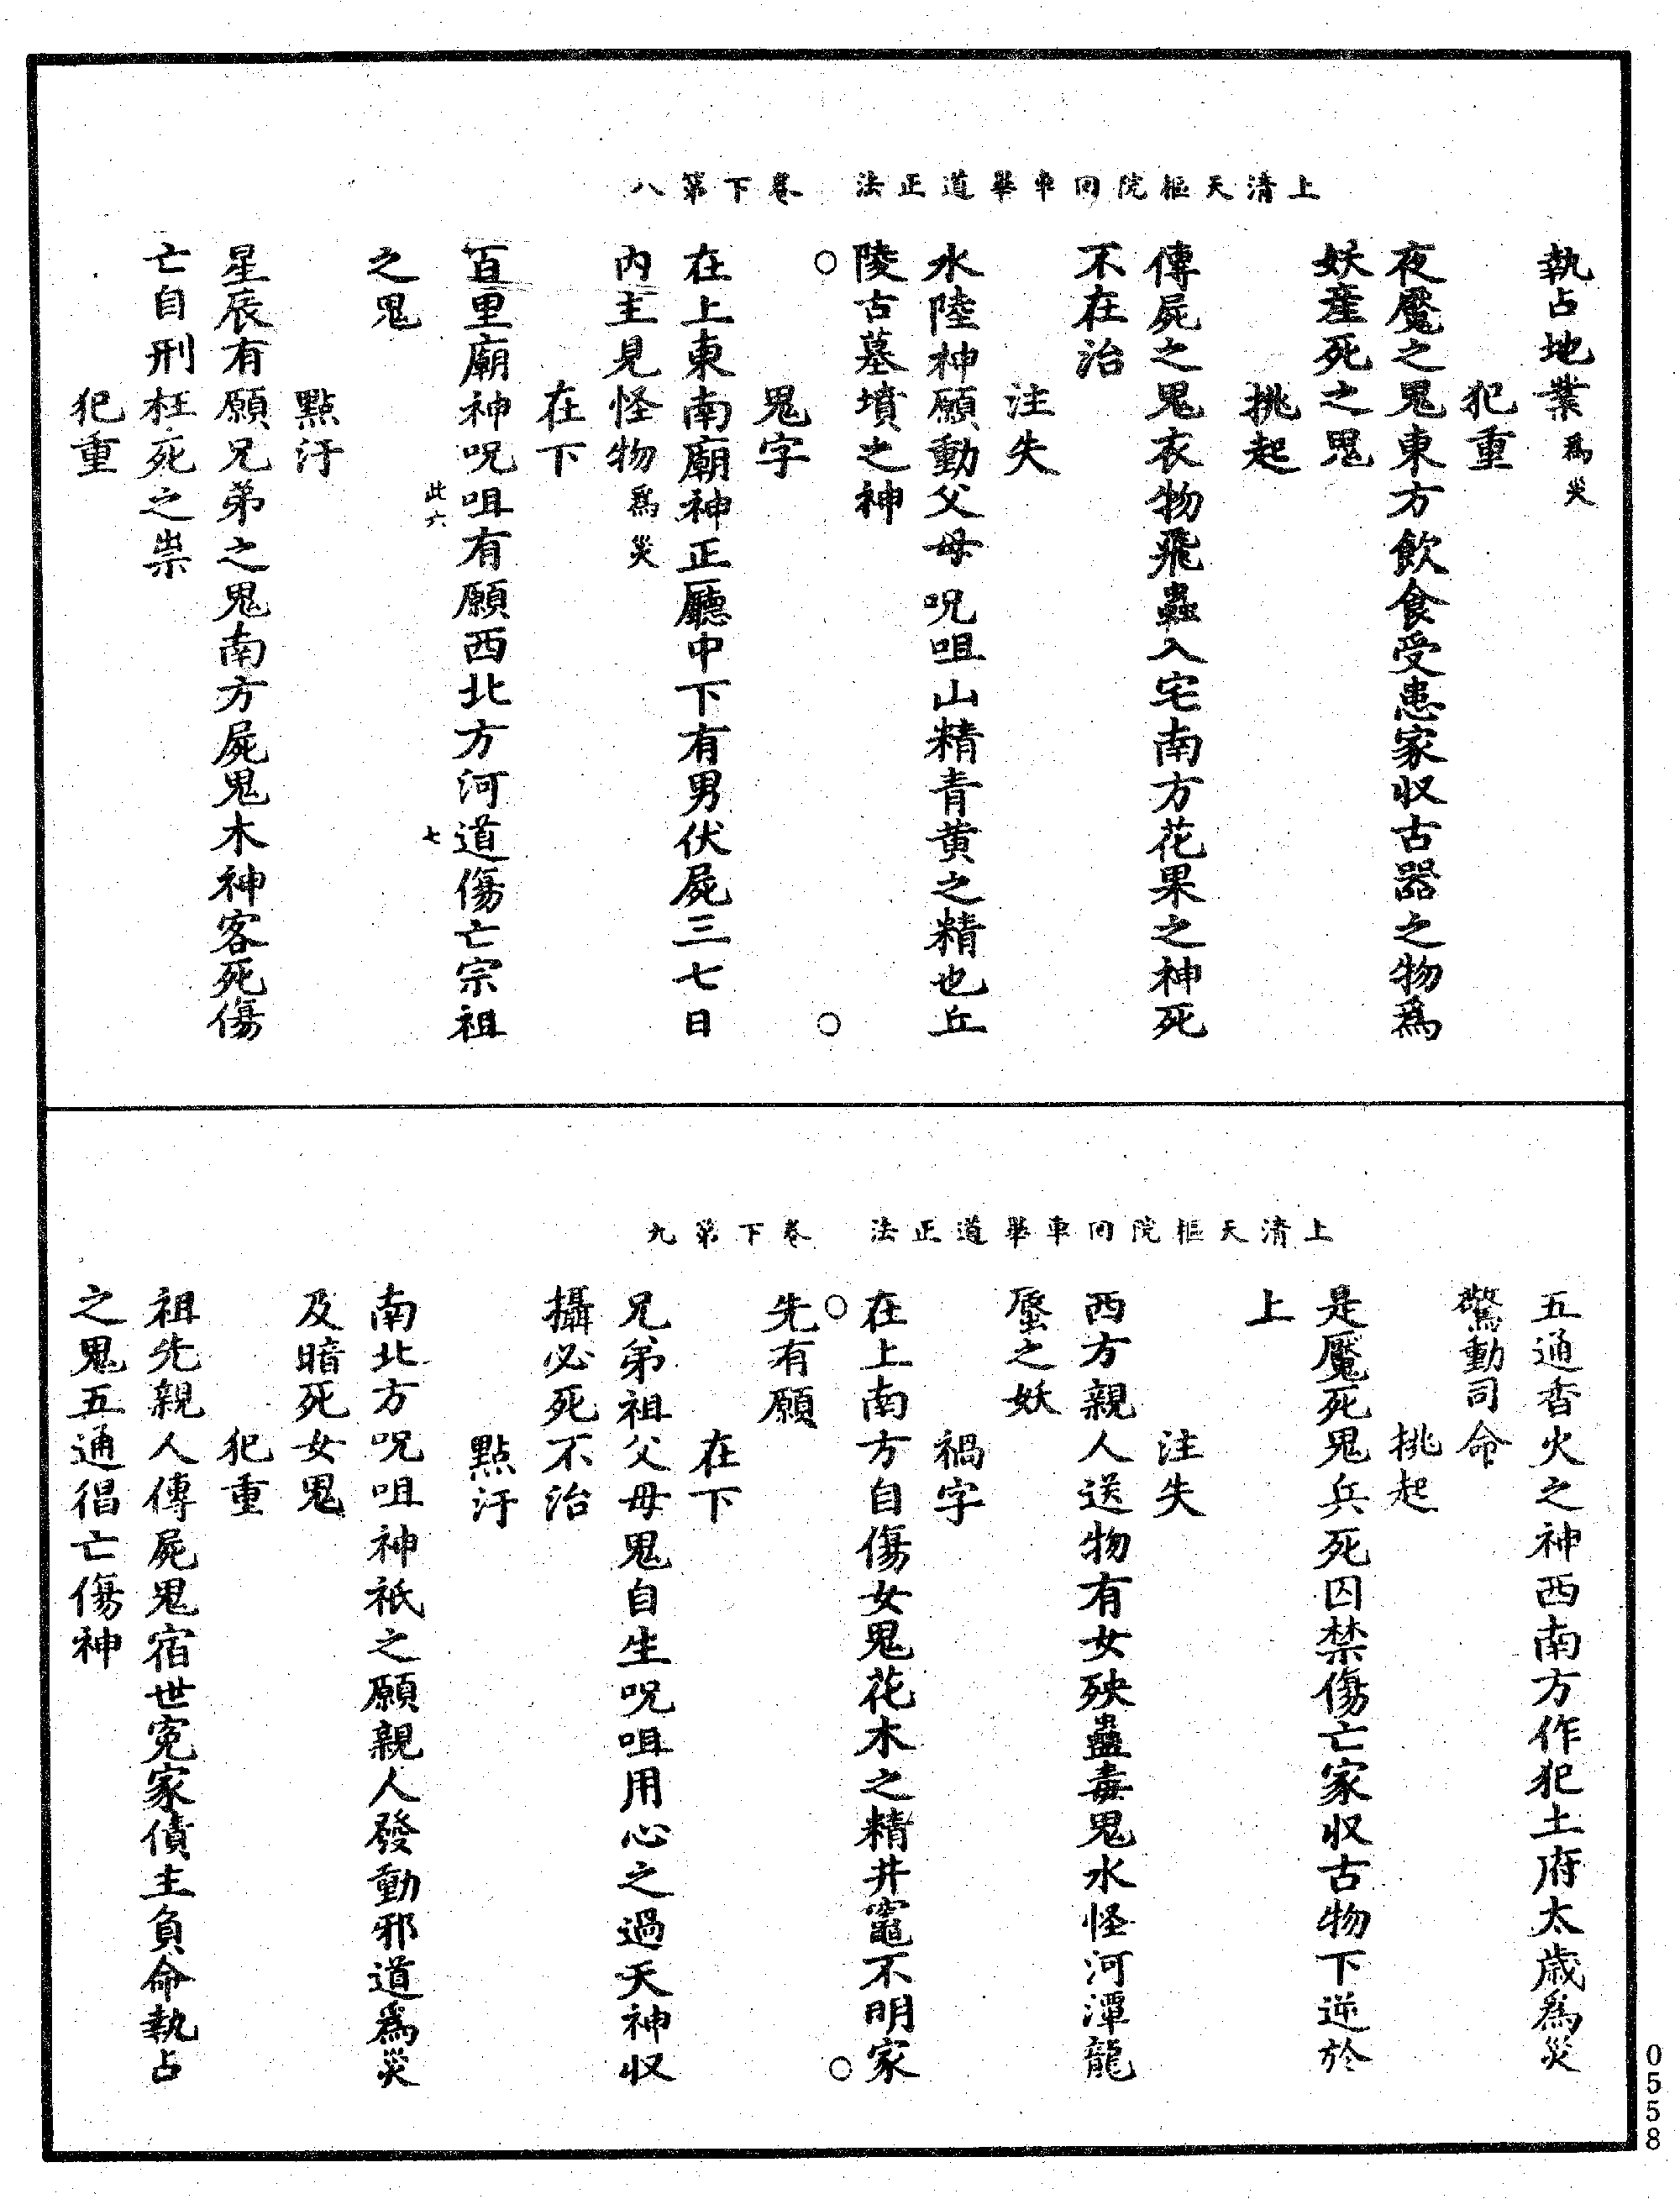 上清天樞院回車畢道正法　卷下第八
執占地業爲災
犯重
夜魘之鬼東方飲食受患家収古器之物爲
妖産死之鬼
挑起
傳屍之鬼衣物飛蟲入宅南方花果之神死
不在治
注失
水陸神願動父母呪咀山精青黄之精也丘
陵古墓墳之神
○　○
鬼字
在上東南廟神正廳中下有男伏屍三七日
内主見怪物爲災
在下
百里廟神呪咀有願西北方河道傷亡宗祖
此六　七
之鬼
點汙
星辰有願兄弟之鬼南方屍鬼木神客死傷
亡自刑枉死之祟
犯重
上清天樞院回車畢道正法　卷下第九
五通香火之神西南方作犯土府太歲爲災
驚動司命
挑起
是魘死鬼兵死囚禁傷亡家収古物下逆於
上
注失
西方親人送物有女殃蠱毒鬼水怪河潭龍
蜃之妖
禍字
在上南方自傷女鬼花木之精井竈不明家
○　○
先有願
在下
兄弟祖父母鬼自生呪咀用心之過天神収
攝必死不治
點汙
南北方呪咀神祇之願親人發動邪道爲災
及暗死女鬼
犯重
祖先親人傳屍鬼宿世冤家債主負命執占
之鬼五通猖亡傷神
0558